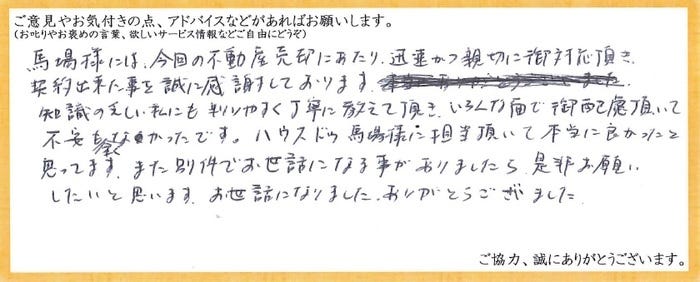 ご意見やお気付きの点、アドバイスなどがあればお願いします。
(お叱りやお褒めの言葉、欲しいサービス情報などご自由にどうぞ)
馬場様には、今回の不動産売却にあたり、迅速かつ親切に御対応頂き
契約出来た事を誠に感謝しております。
知識の乏しい私にも判りやすく丁寧に教えて頂き、いろんな面で御配慮頂いて
不安も余りなかったです。ハウスドゥ馬場様に担当頂いて本当に良かったと
思ってます。また別件でお世話になる事がありましたら、是非お願い
したいと思います。お世話になりました。ありがとうございました。
ご協力、誠にありがとうございます。